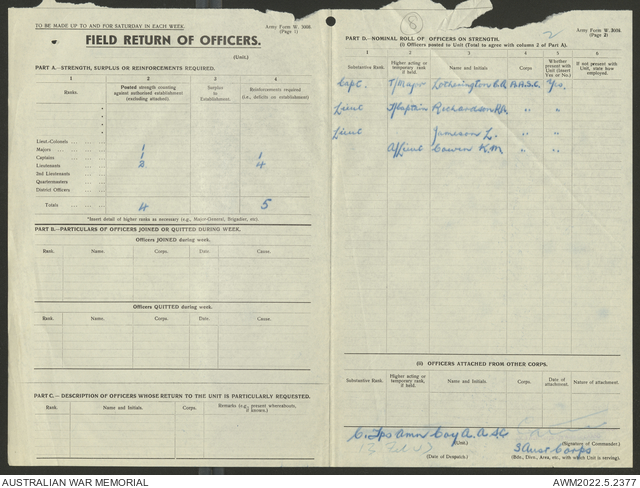 TO BE MADE UP TO AND FOR SATURDAY IN EACH WEEK.
Army Form W. 3008.
(Page 1)
FIELD RETURN OF OFFICERS.
(Unit.)
PART A.—STRENGTH, SURPLUS OR REINFORCEMENTS REQUIRED.
1 2 3 4
Ranks. Posted strength counting against authorised establishment (excluding attached). Surplus to Establishment. Reinforcements required (i.e., deficits on establishment)
Lieut.-Colonels
Majors 1
Captains 1 1
Lieutenants 2 4
2nd Lieutenants
Quartermasters
District Officers
Totals 4 5
*Insert detail of higher ranks as necessary (e.g., Major-General, Brigadier, etc).
PART B.—PARTICULARS OF OFFICERS JOINED OR QUITTED DURING WEEK.
Officers JOINED during week.
Rank. Name. Corps. Date. Cause.
Officers QUITTED during week.
Rank. Name. Corps. Date. Cause.
PART C.—DESCRIPTION OF OFFICERS WHOSE RETURN TO THE UNIT IS PARTICULARLY REQUESTED.
Rank. Name and Initials. Corps. Remarks (e.g., present whereabouts, if known.)
8
2
Army Form W. 3008.
(Page 2)
PART D.—NOMINAL ROLL OF OFFICERS ON STRENGTH.
(i) Officers posted to Unit (Total to agree with column 2 of Part A).
1 2 3 4 5 6
Substantive Rank. Higher acting or temporary rank if held. Name and Initials. Corps. Whether present with Unit (insert Yes or No.) If not present with Unit, state how employed.
Capt. T/Major Lotherington A.A.S.C. Yes.
Lieut T/Captain Richardson " "
Lieut Jameson L. " "
A/Lieut Cowen K.M " "
(ii) OFFICERS ATTACHED FROM OTHER CORPS.
Substantive Rank. Higher acting or temporary rank, if held. Name and Initials. Corps. Date of attachment. Nature of attachment.
C. Tps Amn Coy A.A.SC
(Unit.) (Signature of Commander.)
3 Aust Corps
(Date of Despatch.) (Bde., Divn., Area, etc., with which Unit is serving).
AUSTRALIAN WAR MEMORIAL
AWM2022.5.2377